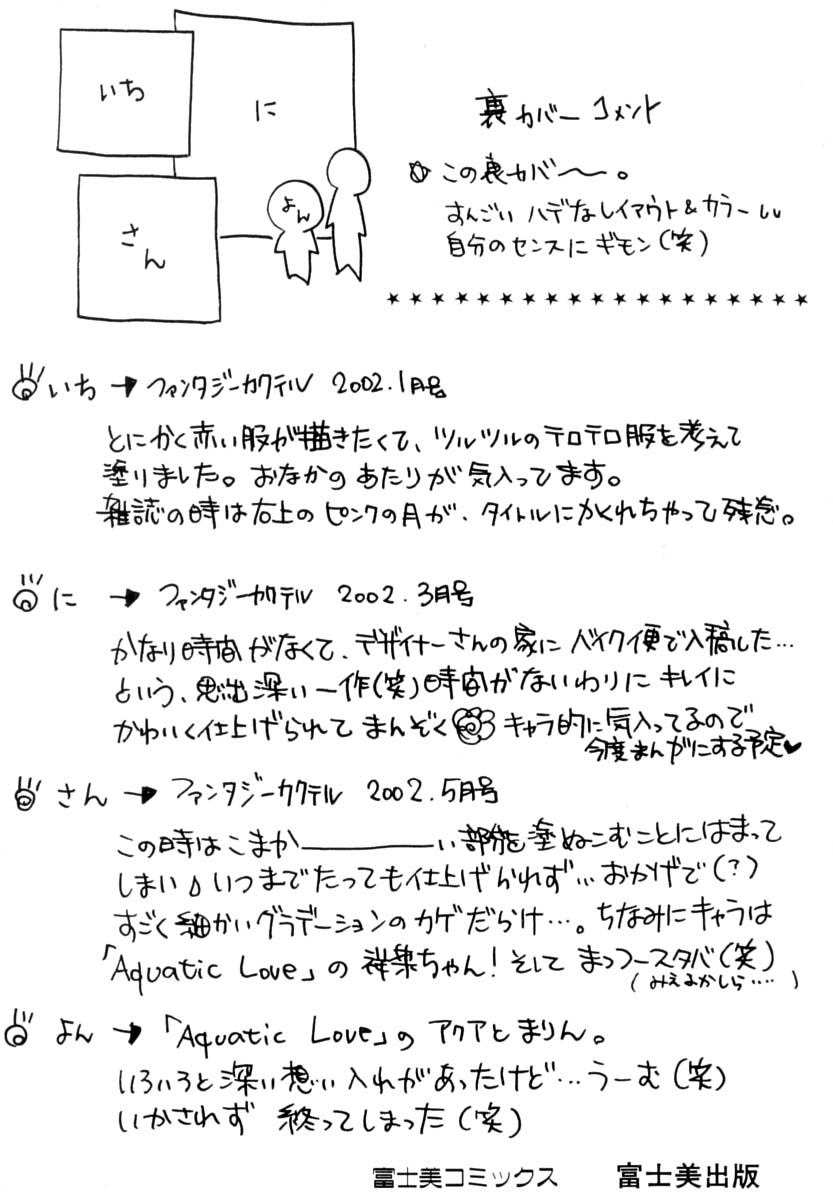 いち
に
さん
よん
裏カバーコメント
この裏カバ〜。
すんごいハデなレイアウト&カラーしい
自分のセンスにギモン(笑)
★★★★★★★★★★★★★★★★★★★
いち → ファンタジーカクテル 2002.1月号
とにかく赤い服が描きたくて、ツルツルのテロテロ服を考えて
塗りました。おなかのあたりが気入ってます。
雑誌の時は右上のピンクの月が、タイトルにかくれちゃって残念。
に → ファンタジーカクテル 2002.3月号
かなり時間がなくて、デザイナーさんの家にバイク便で入稿した…
という、思出深い一作(笑)時間がないわりにキレイに
かわいく仕上げられてまんぞく キャラ的に気入ってるので
今度まんがにする予定♥
さん → ファンタジーカクテル 2002.5月号
この時はこまか――――い部分を塗ぬこむことにはまって
しまい♪いつまでたっても仕上げられず… おかげで(?)
すごく細かいグラデーションのカゲだらけ…。ちなみにキャラは
「Aquatic Love」のちゃん!そして まっフースタバ(笑)
(みえるかしら‥‥)
よん → 「Aquatic Love」のアクアとまりん。
いろいろと深い想い入れがあったけど…うーむ(笑)
いかされず 終ってしまった(笑)
富士美コミックス 富士美出版